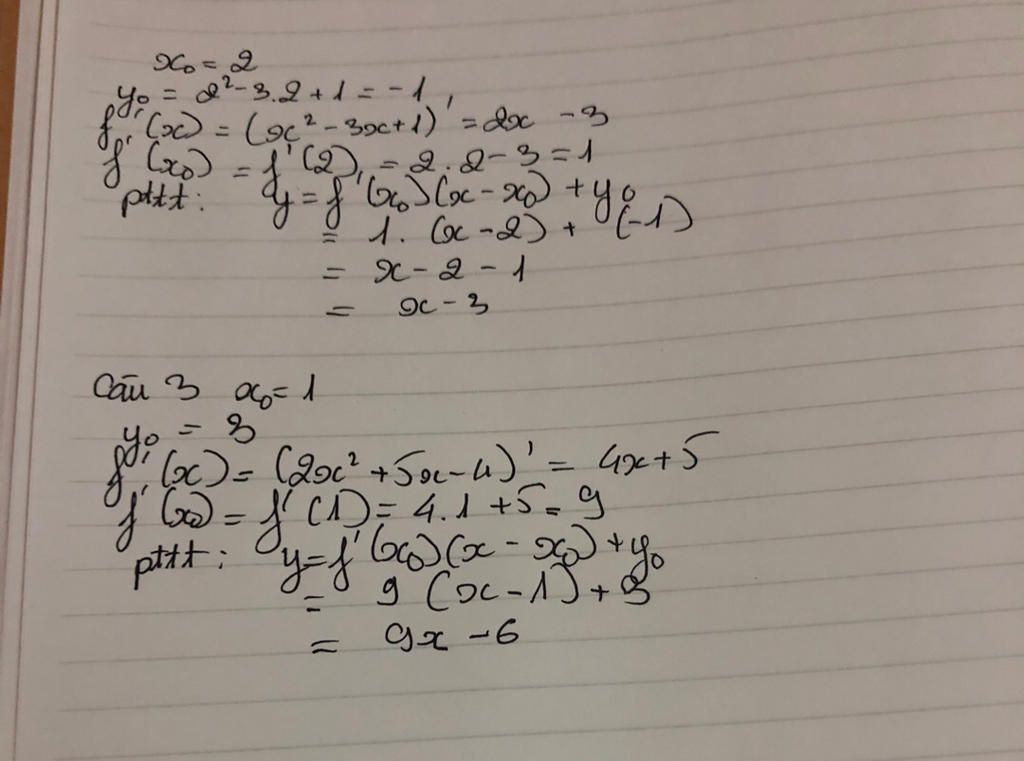 x₀ = 2
y₀ = 2² - 3.2 + 1 = -1
f'(x) = (x² - 3x + 1)' = 2x - 3
f'(x₀) = f'(2) = 2.2 - 3 = 1
pttt: y = f'(x₀)(x - x₀) + y₀
= 1. (x - 2) + (-1)
= x - 2 - 1
= x - 3
Câu 3 x₀ = 1
y₀ = 3
f'(x) = (2x² + 5x - 4)' = 4x + 5
f'(x₀) = f'(1) = 4.1 + 5 = 9
pttt: y = f'(x₀)(x - x₀) + y₀
= 9 (x - 1) + 3
= 9x - 6